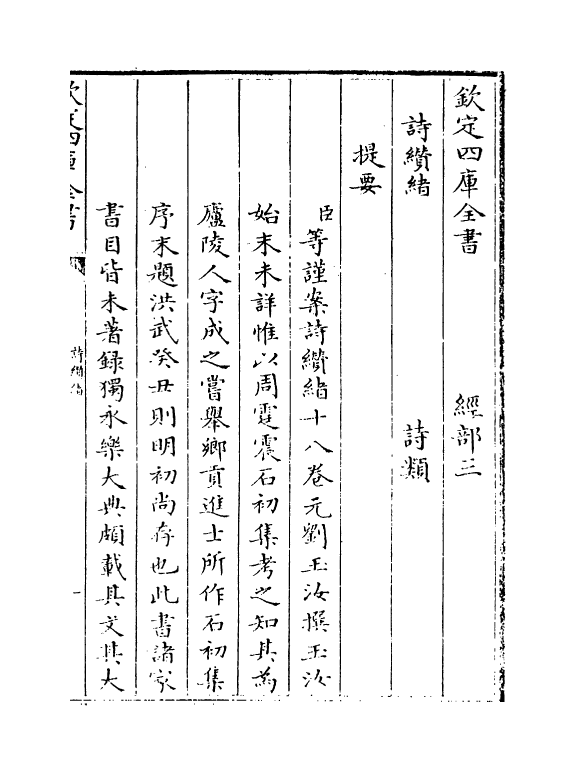 欽定四庫全書　經部三
詩纘緒　詩類
提要
臣等謹案詩纘緒十八卷元劉玉汝撰玉汝
始末未詳惟以周霆震石初集考之知其為
廬陵人字成之嘗舉鄉貢進士所作石初集
序末題洪武癸丑則明初尚存也此書諸家
書目皆未著錄獨永樂大典頗載其文其大
欽定四庫全書
詩纘緒
一